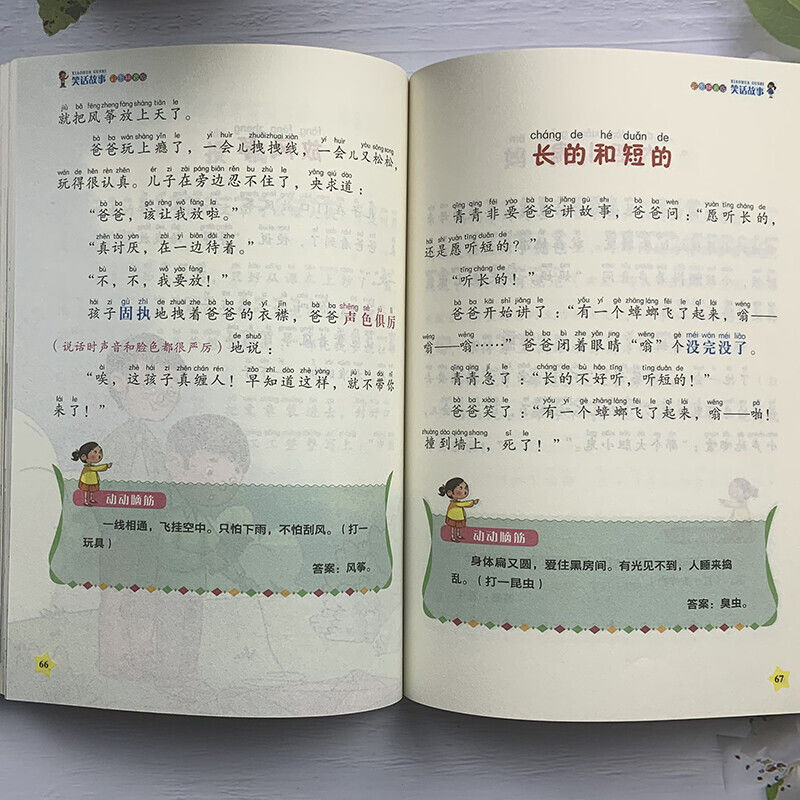 XIAOHUA GUSHI
笑话故事
jiù bǎ fēng zheng fàng shàng tiān le
就把风筝放上天了。
bà ba wán shàng yǐn le yí huìr zhuài zhuai xiàn yí huìr yòu sōng song
爸爸玩上瘾了，一会儿拽拽线，一会儿又松松，
wán de hěn rèn zhēn ér zi zài páng biān rěn bu zhù le yāng qiú dào
玩得很认真。儿子在旁边忍不住了，央求道：
bà ba gāi ràng wǒ fàng la
“爸爸，该让我放啦。”
zhēn tǎo yàn zài yì biān dāi zhe
“真讨厌，在一边待着。”
bù bù wǒ yào fàng
“不，不，我要放！”
hái zi gù zhí de zhuài zhe bà ba de yī jīn bà ba shēng sè jù lì
孩子固执地拽着爸爸的衣襟，爸爸声色俱厉
de shuō
（说话时声音和脸色都很严厉）地说：
ài zhè hái zi zhēn chán rén zǎo zhī dào zhè yàng jiù bú dài nǐ
“唉，这孩子真缠人！早知道这样，就不带你
lái le
来了！”
动动脑筋
一线相通，飞挂空中。只怕下雨，不怕刮风。（打一
玩具）
答案：风筝。
66
XIAOHUA GUSHI
笑话故事
cháng de hé duǎn de
长的和短的
qīng qing fēi yào bà ba jiǎng gù shi bà ba wèn yuàn tīng cháng de
青青非要爸爸讲故事，爸爸问：“愿听长的，
hái shi yuàn tīng duǎn de
还是愿听短的？”
tīng cháng de
“听长的！”
bà ba kāi shǐ jiǎng le yǒu yí gè zhāng láng fēi le qǐ lái wēng
爸爸开始讲了：“有一个蟑螂飞了起来，嗡——
wēng wēng bà ba bì zhe yǎn jing wēng gè méi wán méi liǎo
嗡——嗡……”爸爸闭着眼睛“嗡”个没完没了。
qīng qing jí le cháng de bù hǎo tīng tīng duǎn de
青青急了：“长的不好听，听短的！”
bà ba xiào le yǒu yí gè zhāng láng fēi le qǐ lái wēng pā
爸爸笑了：“有一个蟑螂飞了起来，嗡——啪！
zhuàng dào qiáng shang sǐ le
撞到墙上，死了！”
动动脑筋
身体扁又圆，爱住黑房间。有光见不到，人睡来捣
乱。（打一昆虫）
答案：臭虫。
67